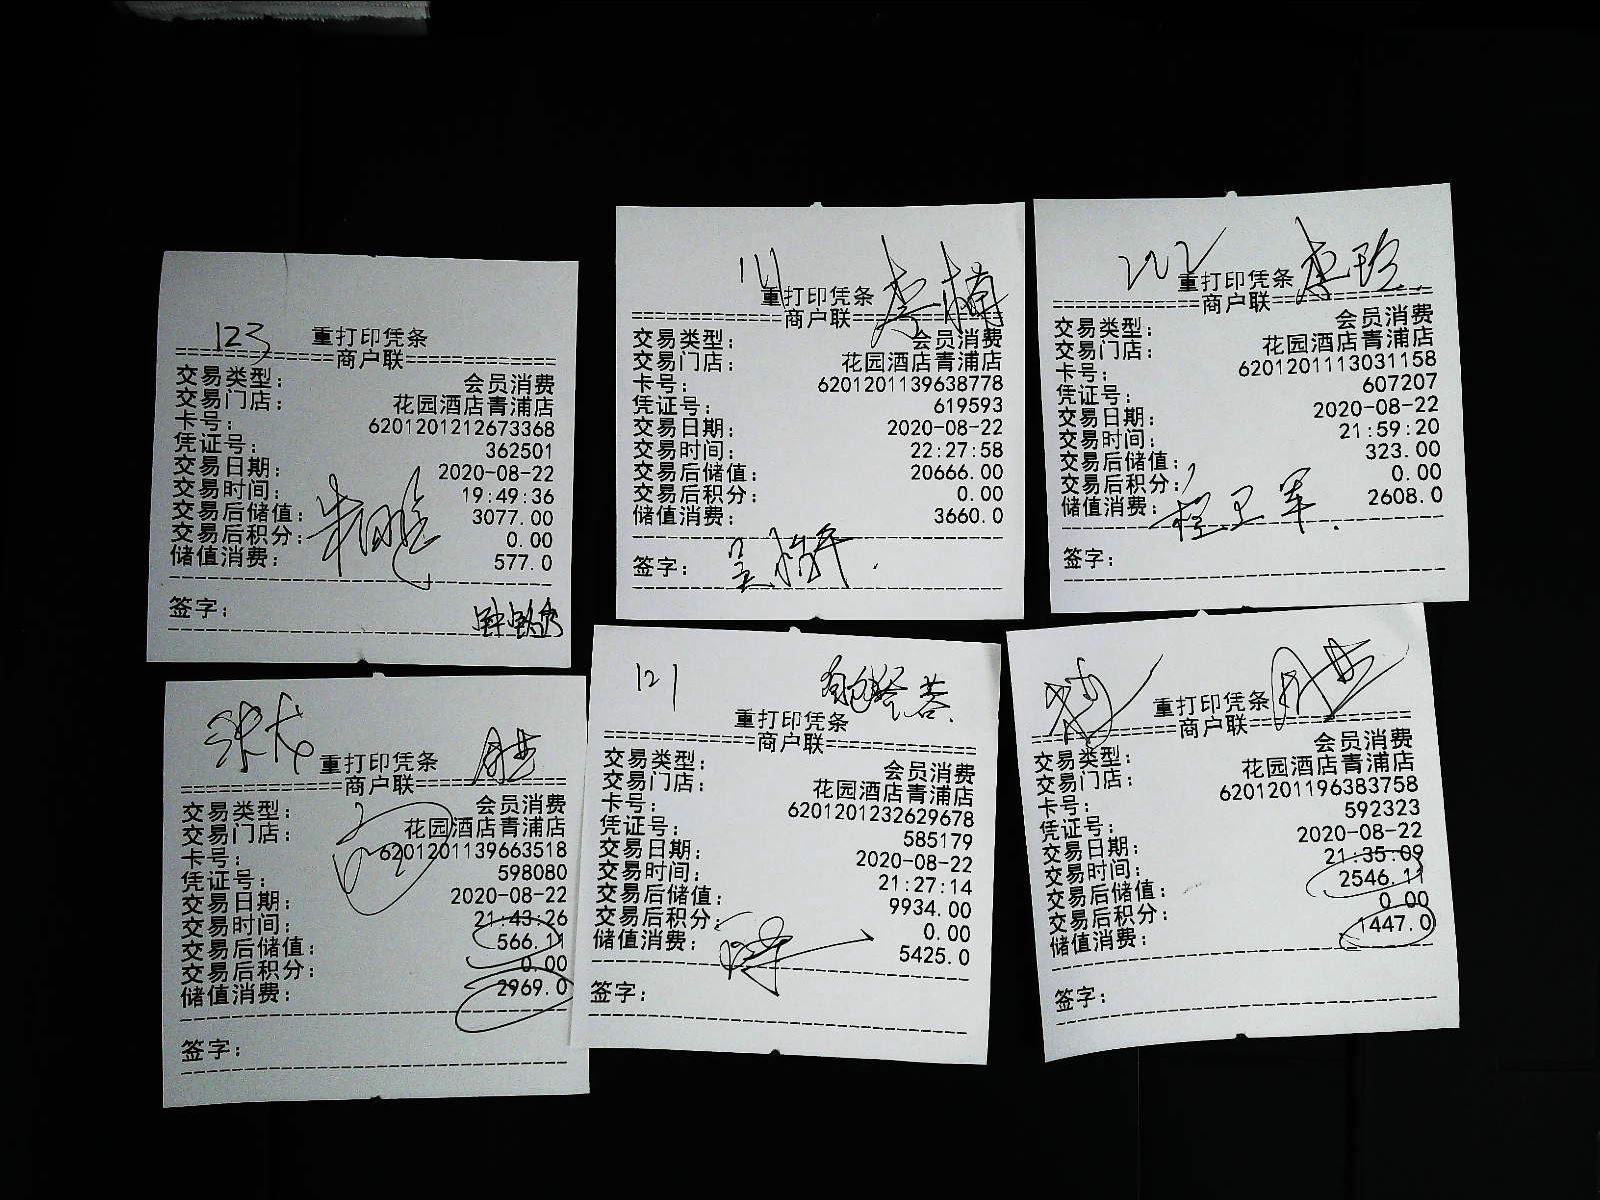 123
重打印凭条
商户联
交易类型: 会员消费
交易门店: 花园酒店青浦店
卡号: 6201201212673368
凭证号: 362501
交易日期: 2020-08-22
交易时间: 19:49:36
交易后储值: 3077.00
交易后积分: 0.00
储值消费: 577.0
签字:
111
重打印凭条
商户联
交易类型: 会员消费
交易门店: 花园酒店青浦店
卡号: 6201201139638778
凭证号: 619593
交易日期: 2020-08-22
交易时间: 22:27:58
交易后储值: 20666.00
交易后积分: 0.00
储值消费: 3660.0
签字:
202
重打印凭条
商户联
交易类型: 会员消费
交易门店: 花园酒店青浦店
卡号: 6201201113031158
凭证号: 607207
交易日期: 2020-08-22
交易时间: 21:59:20
交易后储值: 323.00
交易后积分: 0.00
储值消费: 2608.0
程卫军
签字:
重打印凭条
商户联
交易类型: 会员消费
交易门店: 花园酒店青浦店
卡号: 6201201139663518
凭证号: 598080
交易日期: 2020-08-22
交易时间: 21:43:26
交易后储值: 566.11
交易后积分: 0.00
储值消费: 2969.0
签字:
121
重打印凭条
商户联
交易类型: 会员消费
交易门店: 花园酒店青浦店
卡号: 6201201232629678
凭证号: 585179
交易日期: 2020-08-22
交易时间: 21:27:14
交易后储值: 9934.00
交易后积分: 0.00
储值消费: 5425.0
签字:
重打印凭条
商户联
交易类型: 会员消费
交易门店: 花园酒店青浦店
卡号: 6201201196383758
凭证号: 592323
交易日期: 2020-08-22
交易时间: 21:35:09
交易后储值: 2546.11
交易后积分: 0.00
储值消费: 1447.0
签字: